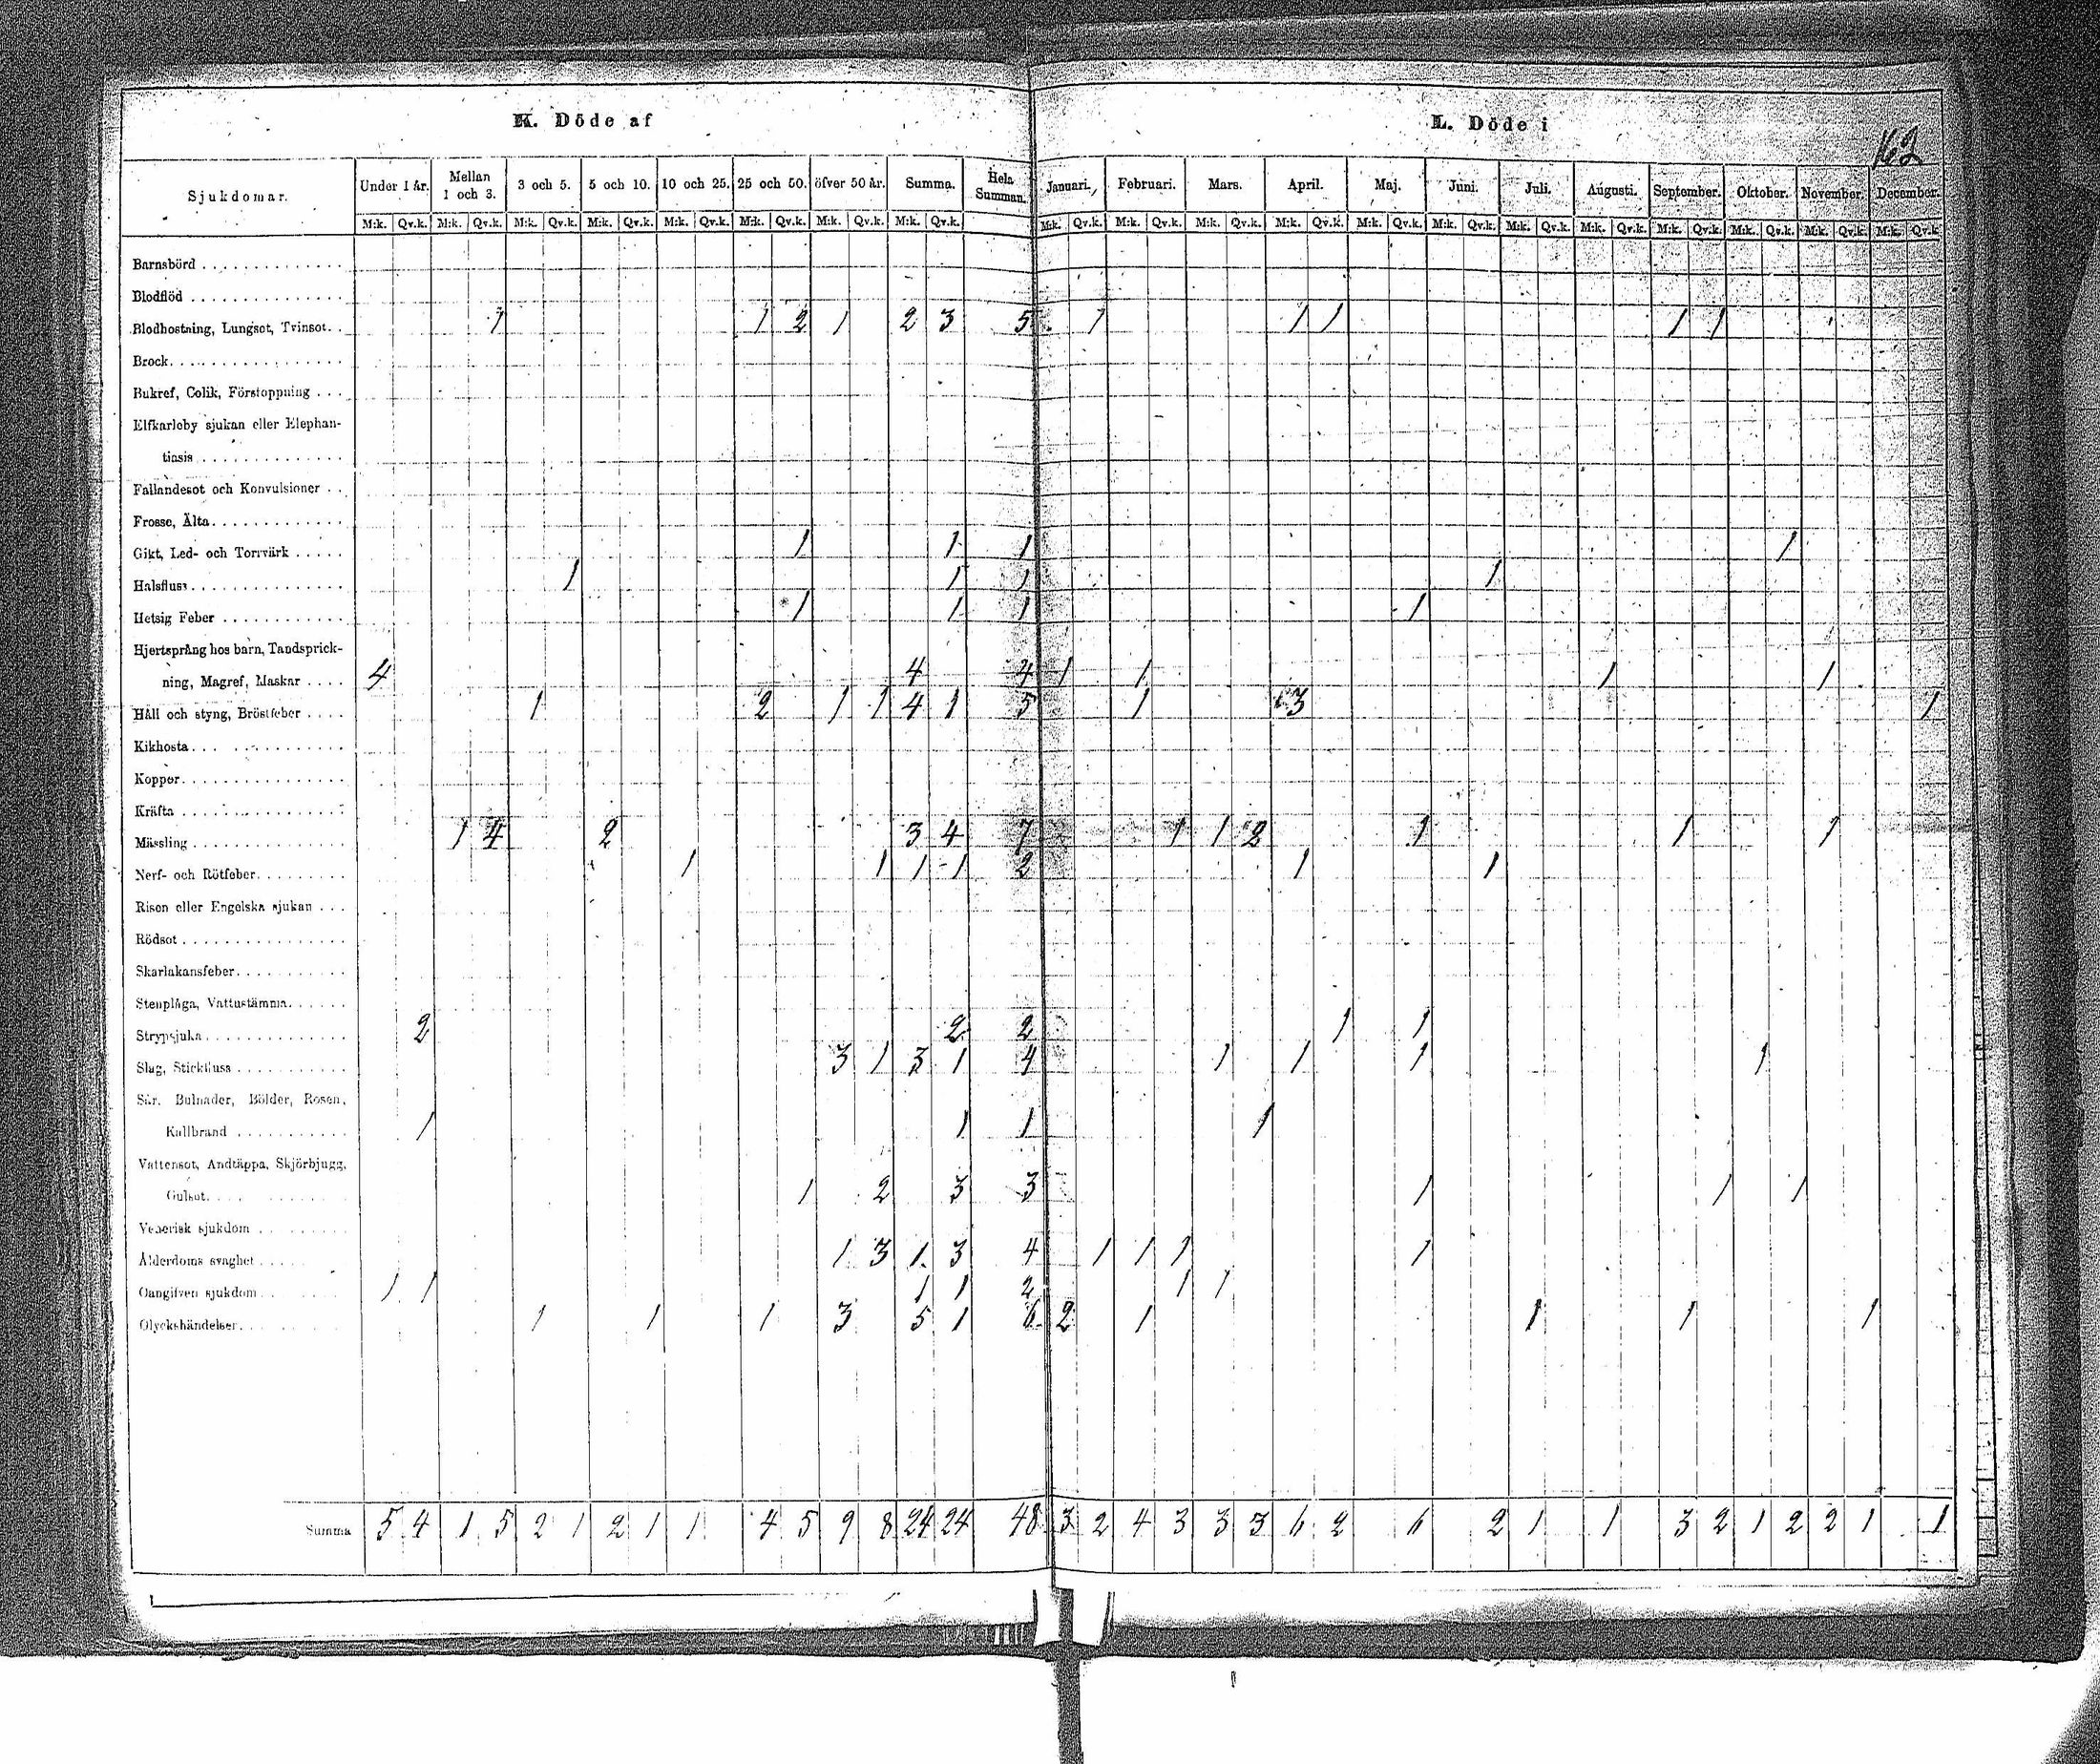 K. Döde af
L. Döde i
162
Sjukdomar.
Under 1 år. Mellan 1 och 3. 3 och 5. 5 och 10. 10 och 25. 25 och 50. öfver 50 år. Summa. Hela Summan. Januari. Februari. Mars. April. Maj. Juni. Juli. Augusti. September. Oktober. November. December.
M:k. Qv.k. M:k. Qv.k. M:k. Qv.k. M:k. Qv.k. M:k. Qv.k. M:k. Qv.k. M:k. Qv.k. M:k. Qv.k. M:k. Qv.k. M:k. Qv.k. M:k. Qv.k. M:k. Qv.k. M:k. Qv.k. M:k. Qv.k. M:k. Qv.k. M:k. Qv.k. M:k. Qv.k. M:k. Qv.k. M:k. Qv.k. M:k. Qv.k.
Barnsbörd
Blodflöd
Blodhostning, Lungsot, Tvinsot. 1 1 2 1 2 3 5 1 1 1 1 1
Brock
Bukref, Colik, Förstoppning
Elfkarleby sjukan eller Elephan-
tiasis
Fallandesot och Konvulsioner
Frosse, Älta
Gikt, Led- och Torrvärk 1 1 1 1
Halsfluss 1 1 1 1
Hetsig Feber 1 1 1 1
Hjertsprång hos barn, Tandsprick-
ning, Magref, Maskar 4 4 4 1 1 1 1
Håll och styng, Bröstfeber 1 2 1 1 4 1 5 1 3 1
Kikhosta
Koppor
Kräfta
Mässling 1 4 2 3 4 7 1 1 2 1 1 1
Nerf- och Rötfeber 1 1 1 1 2 1 1
Risen eller Engelska sjukan
Rödsot
Skarlakansfeber
Stenplåga, Vattustämma
Strypsjuka 2 2 2 1 1
Slag, Stickfluss 3 1 3 1 4 1 1 1 1
Sår, Bulnader, Bölder, Rosen,
Kallbrand 1 1 1 1
Vattensot, Andtäppa, Skjörbjugg,
Gulsot 1 2 3 3 1 1 1
Venerisk sjukdom
Ålderdoms svaghet 1 3 1 3 4 1 1 1 1
Oangifven sjukdom 1 1 1 1 2 1 1
Olyckshändelser 1 1 1 3 5 1 6 2 1 1 1 1
Summa 5 4 1 5 2 1 2 1 1 4 5 9 8 24 24 48 3 2 4 3 3 3 6 2 6 2 1 1 3 2 1 2 2 1 1